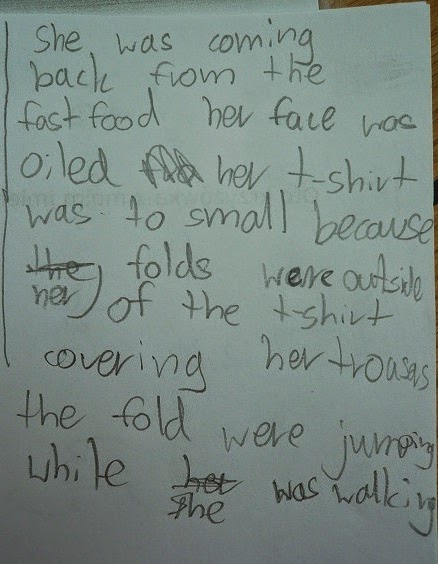 She was coming
back from the
fast food her face was
oiled her t-shirt
was to small because
the folds were outside
her of the t-shirt
covering her trousas
the fold were jumping
while her was walking
she